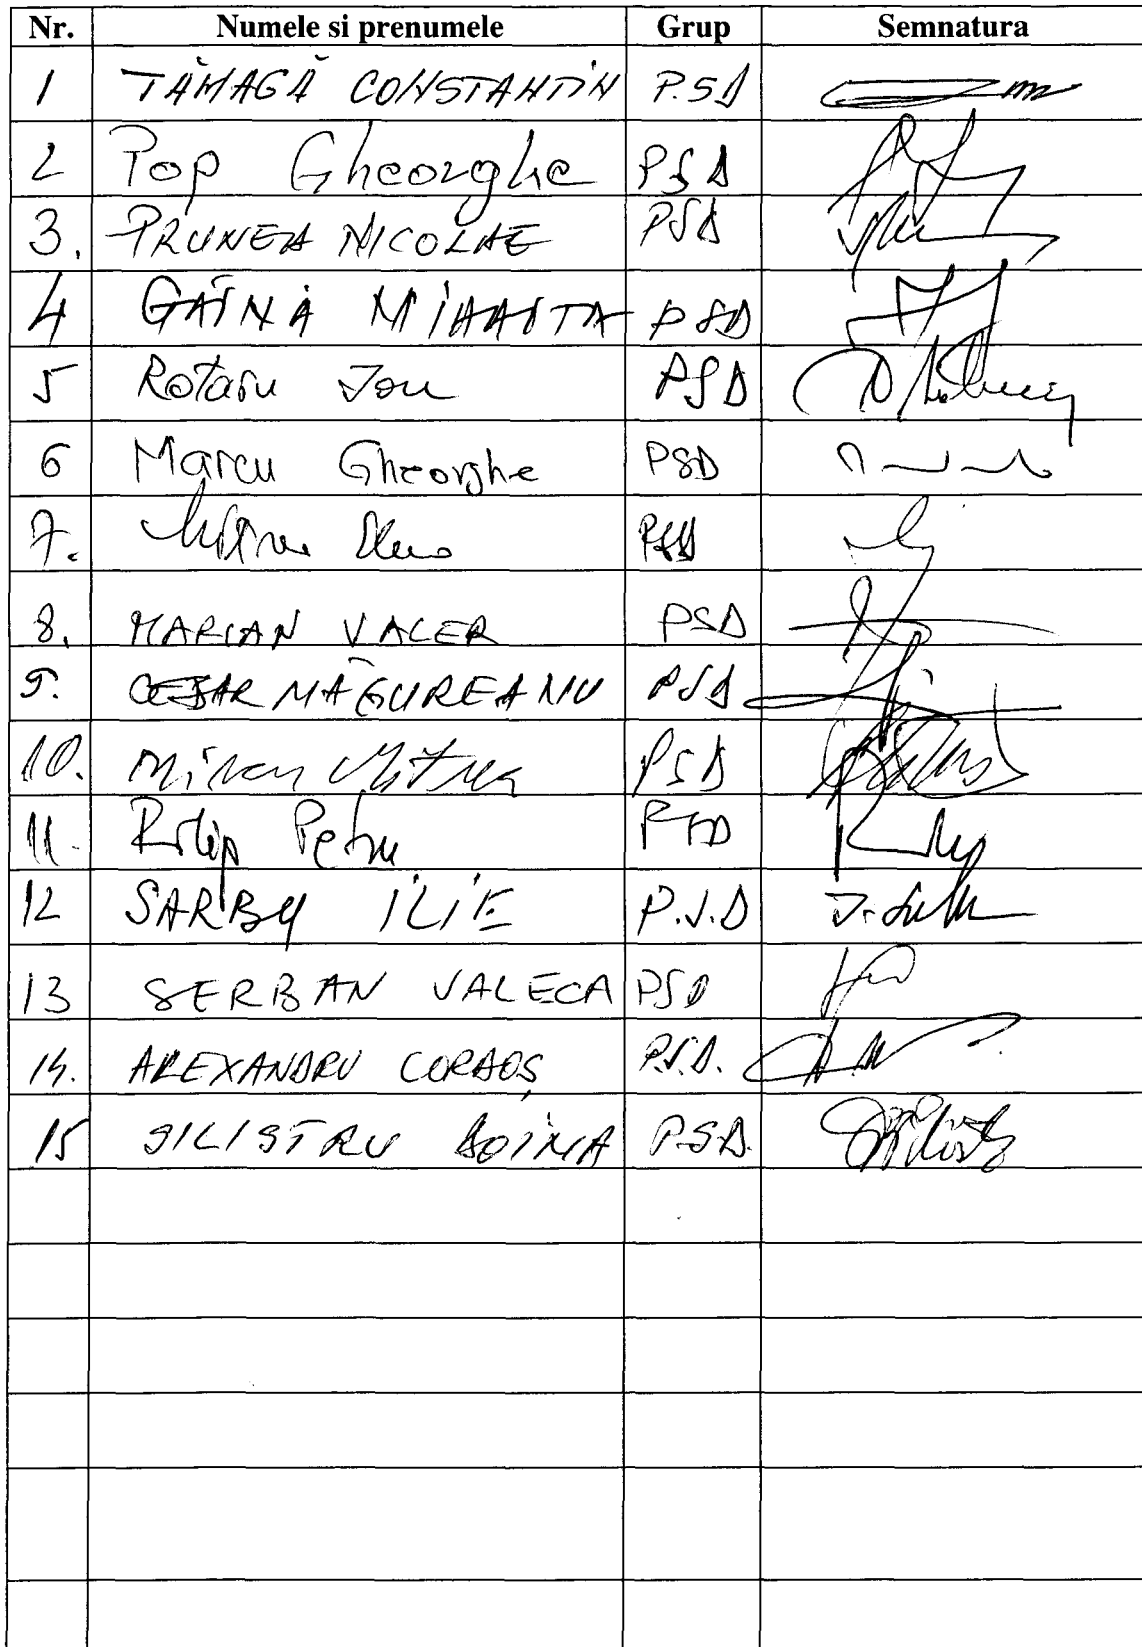 Nr. Numele si prenumele Grup Semnatura
1 TĂMAGĂ CONSTANTIN P.SD
2 Pop Gheorghe PSD
3. PRUNEA NICOLAE PSD
4 GĂINĂ MIHAITA PSD
5 Rotaru Ion PSD
6 Marcu Gheorghe PSD
7. PSD
8. MARIAN VALER PSD
9. CEZAR MĂGUREANU PSD
10. PSD
11. Filip Petru PSD
12 SARBU ILIE P.S.D
13 SERBAN VALECA PSD
14. ALEXANDRU CORDOȘ P.S.D.
15 SILISTRU DOINA P.S.D.